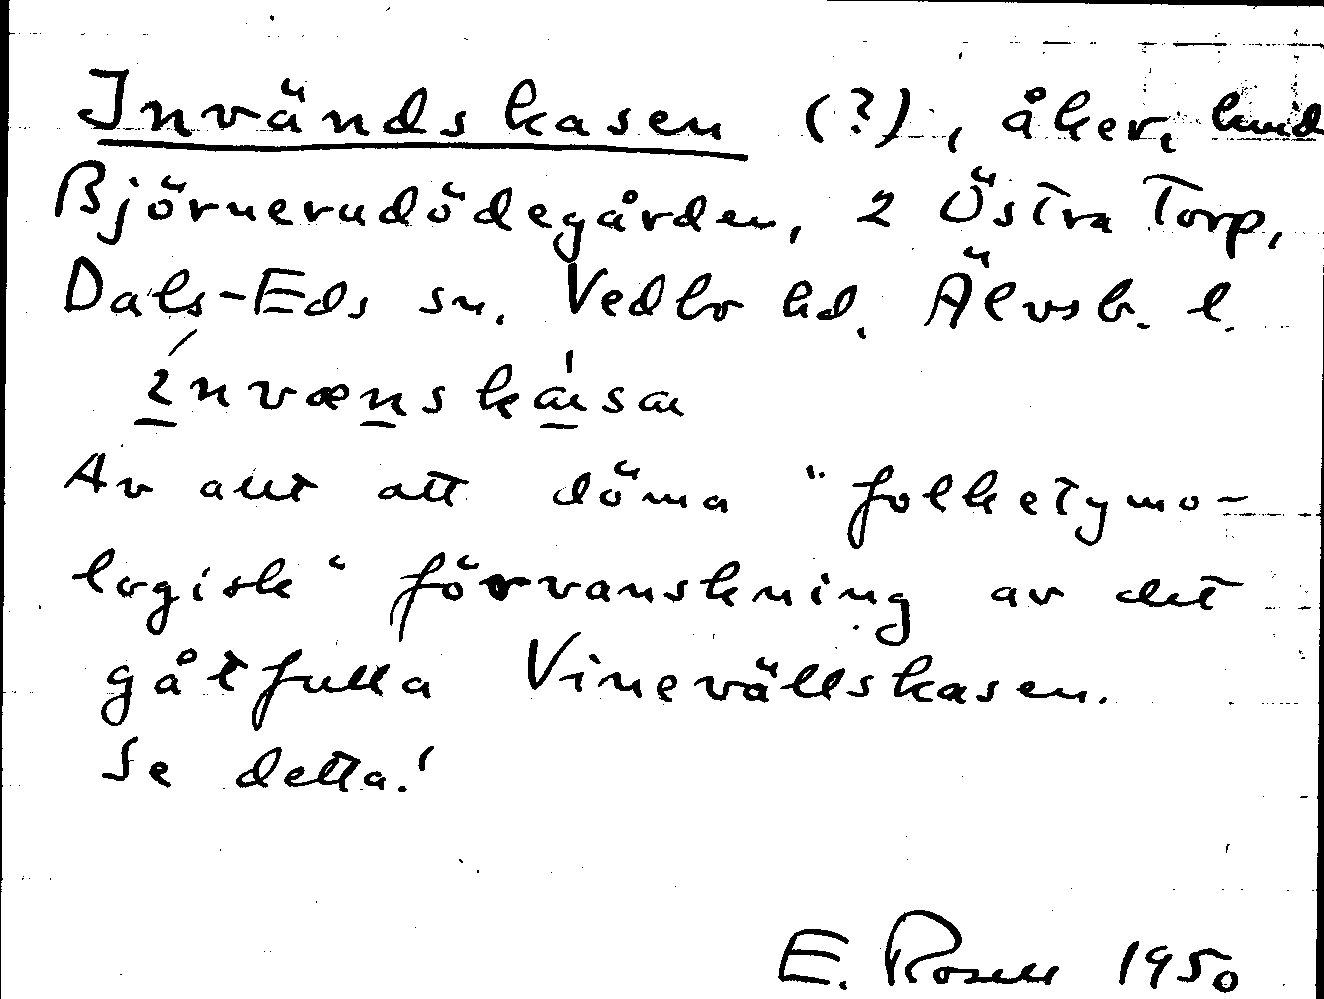 Invändskasen (?), åker,
Björnerudödegården, 2 Östra Torp,
Dals-Eds sn. Vedbo hd. Älvsb. l.
ínvænskása
Av allt att döma "folketymo-
logisk" förvanskning av det
gåtfulla Vinevällskasen.
Se detta!
E. Rosell 1950